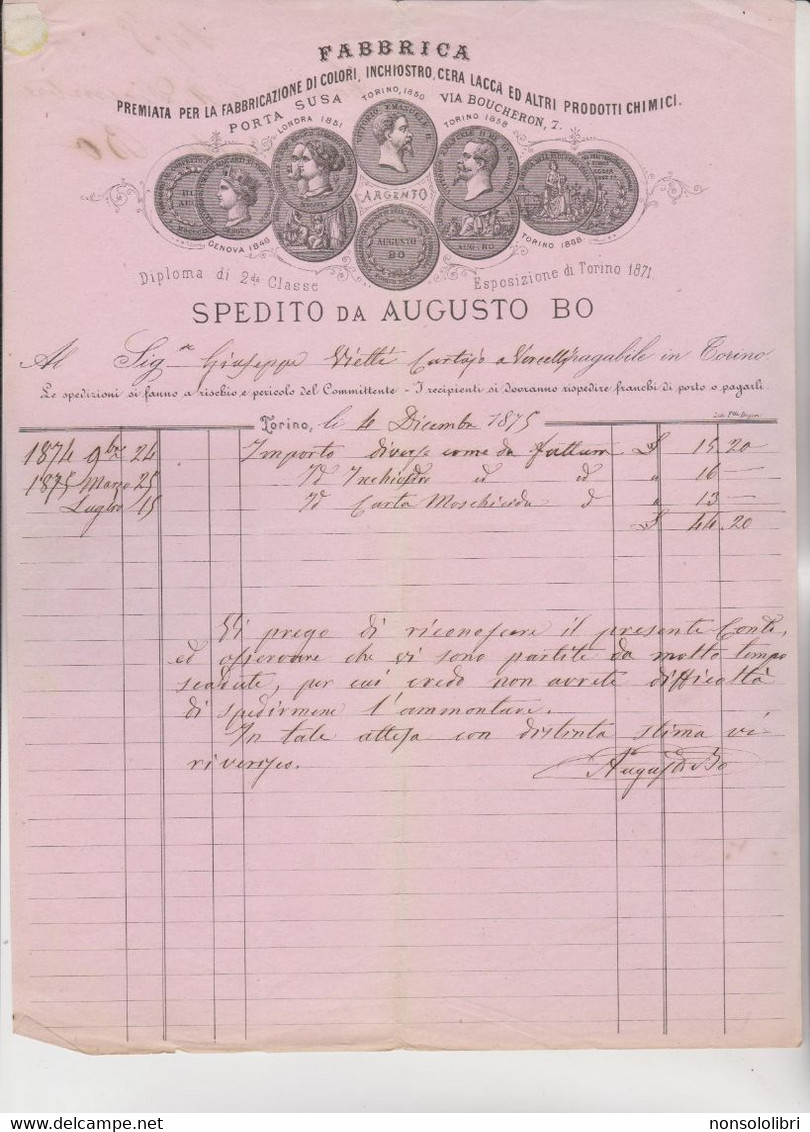 FABBRICA
PREMIATA PER LA FABBRICAZIONE DI COLORI, INCHIOSTRO, CERA LACCA ED ALTRI PRODOTTI CHIMICI.
PORTA SUSA VIA BOUCHERON, 7.
TORINO, 1850
LONDRA 1851 TORINO 1858
ARGENTO
AUGUSTO
BO
AUG. BO
GENOVA 1846
Diploma di 2da Classe Esposizione di Torino 1871.
SPEDITO DA AUGUSTO BO
Al Sig re Giuseppe Vietti Cartajo a Vercelli pagabile in Torino
Le spedizioni si fanno a rischio e pericolo del Committente - I recipienti si dovranno rispedire franchi di porto o pagarli.
Torino, li 4 Dicembre 1875
1874 9bre 24 Importo diverse come da fattura £ 15.20
1875 Marzo 25 Id Inchiostro id id " 16 —
Luglio 15 Id Carta Moschicida d " 13 —
£ 44.20
Vi prego di riconoscere il presente Conto,
ed osservare che vi sono partite da molto tempo
scadute, per cui credo non avrete difficoltà
di spedirmene l'ammontare.
In tale attesa con distinta stima vi
riverisco.
Augusto Bo
nonsololibri